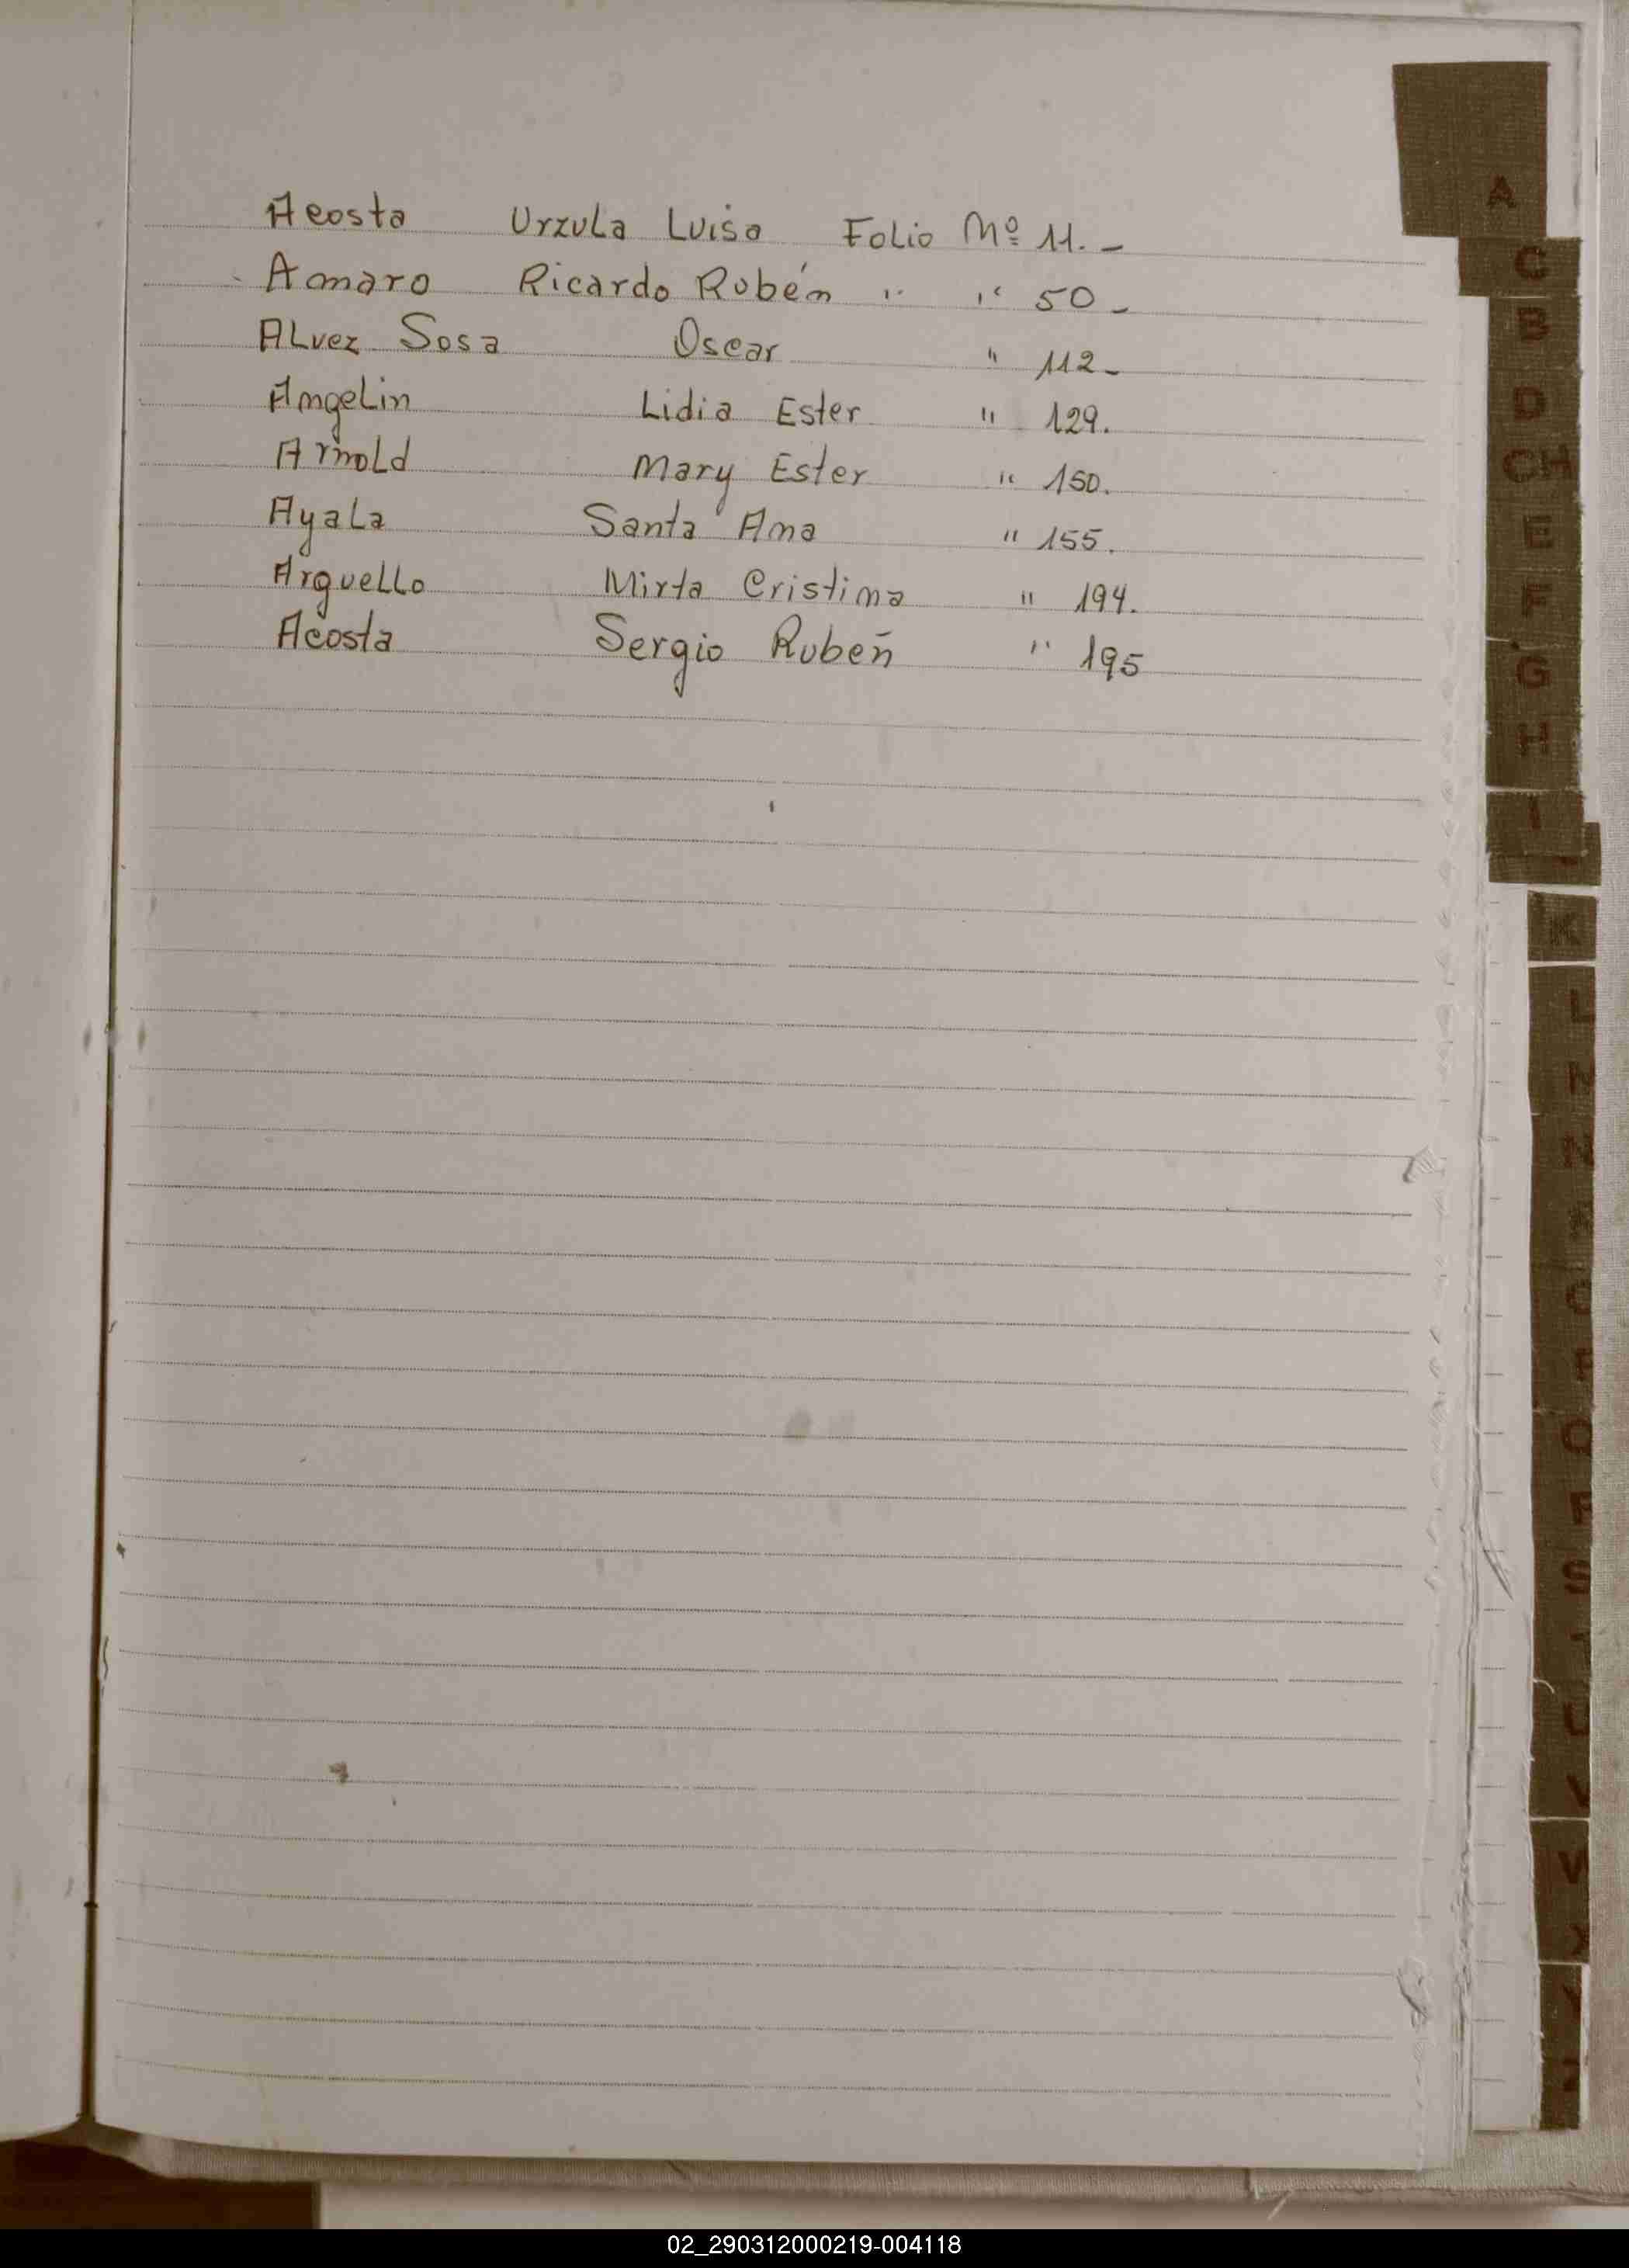 Acosta Urzula Luisa Folio Nº 11.-
Amaro Ricardo Rubén " " 50-
Alvez Sosa Oscar " 112-
Angelin Lidia Ester " 129.
Arnold Mary Ester " 150.
Ayala Santa Ana " 155.
Arguello Mirta Cristina " 194.
Acosta Sergio Rubén " 195
A
C
B
D
CH
E
F
G
H
I
K
L
M
N
O
P
Q
R
S
U
V
02_290312000219-004118